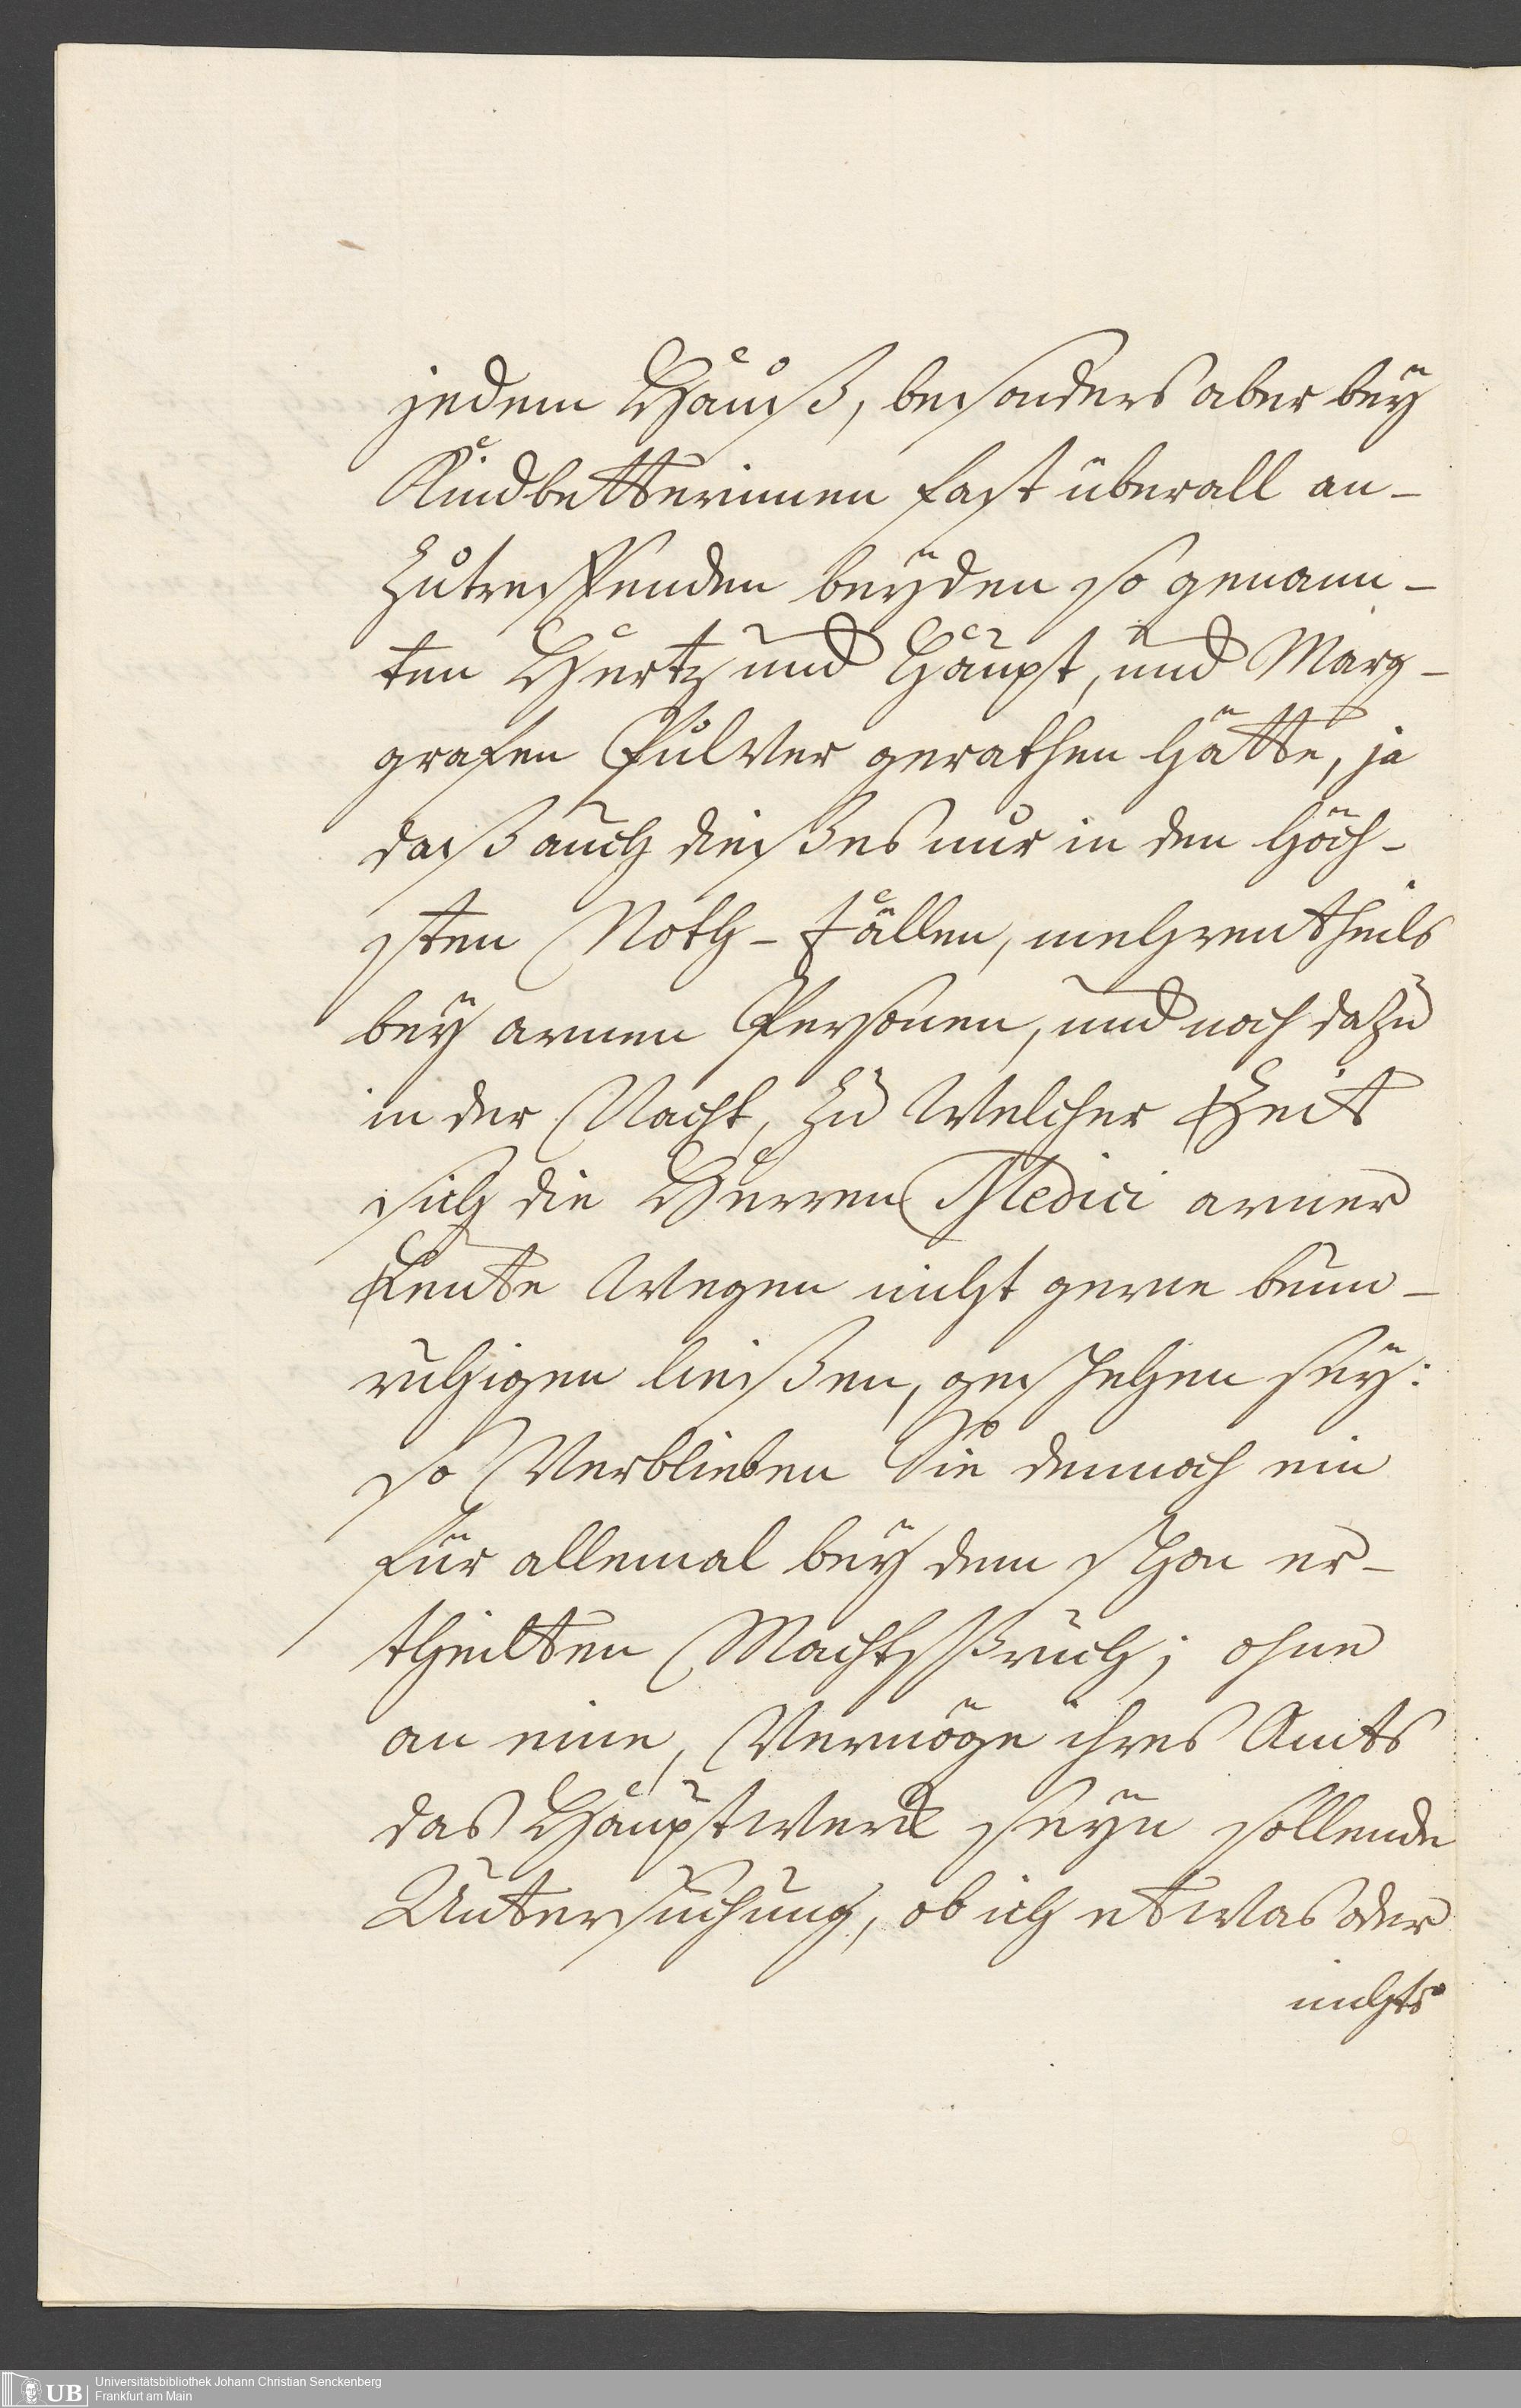 jedem Hauß, besonders aber bey
Kindbetterinnen fast überall an-
zutreffenden beyden so genann-
ten Hertz und Haupt, und Marg-
grafen Pulver gerathen hätte, ja
daß auch dießes nur in den höch-
sten Noth-Fällen, mehrentheils
bey armen Personen, und noch dazu
in der Nacht, zu welcher Zeit
sich die Herren Medici armer
Leute wegen nicht gerne beun-
ruhigen ließen, geschehen sey:
so verblieben Sie dennoch ein
für allemal bey dem schon er-
theilten Machtspruch; ohne
an eine, Vermöge ihres Amts
das Hauptwerck seyn sollende
Untersuchung, ob ich etwas oder
nichts
UB
Universitätsbibliothek Johann Christian Senckenberg
Frankfurt am Main